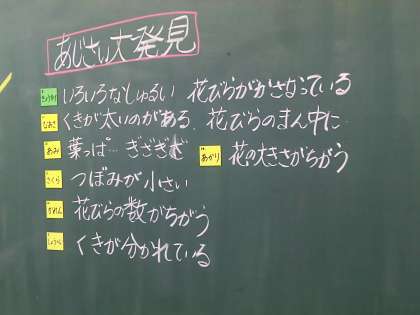 あじさい大発見
いろいろなしゅるい 花びらがかさなっている
なお くきが太いのがある。花びらのまん中に
あみ 葉っぱ…ぎざぎざ
あかり 花の大きさがちがう
さくら つぼみが小さい
かれん 花びらの数がちがう
くきが分かれている